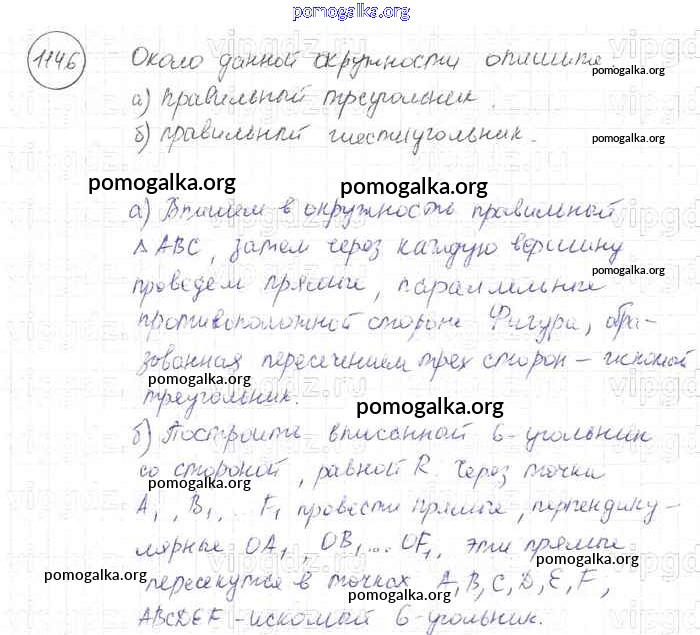 pomogalka.org
1146
Около данной окружности опишите
pomogalka.org
а) правильный треугольник.
б) правильный шестиугольник.
pomogalka.org
pomogalka.org
pomogalka.org
а) Впишем в окружность правильный
△ ABC, затем через каждую вершину
проведем прямые, параллельные
pomogalka.org
противоположной стороне Фигура, обра-
зованная пересечением трех сторон – искомый
pomogalka.org
треугольник.
pomogalka.org
б) Построить вписанный 6-угольник
со стороной, равной R. Через точки
pomogalka.org
A₁, B₁, ... F₁ провести прямые, перпендику-
лярные OA₁, OB₁, ... OF₁, эти прямые
pomogalka.org
pomogalka.org
пересекутся в точках A, B, C, D, E, F,
pomogalka.org
ABCDEF – искомый 6-угольник.